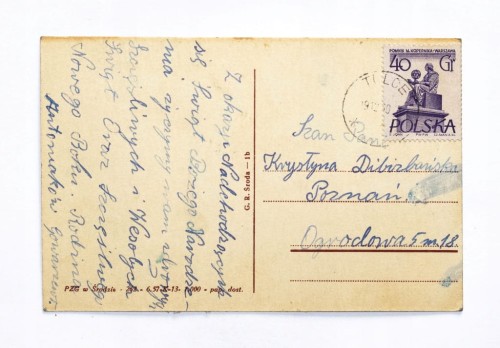 Z okazji Nadchodzących
się Świąt Bożego Narodze-
nia życzymy
Szczęśliwych i Wesołych
Świąt Oraz Szczęśliwego
Nowego Roku Rodzina
Antoniaków
G. R. Środa - 1b
PZG w Środzie - 6.57-K-13- 000 - pap. dost.
POMNIK M. KOPERNIKA-WARSZAWA
40 GR
POLSKA
Szan
Pani
Krystyna Dibizbańska
Poznań
Ogrodowa 5 m 18.